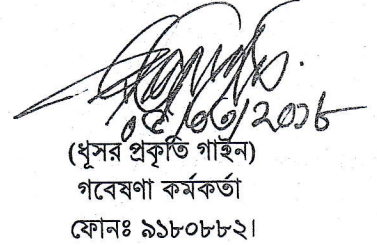 ২০১৮
(ধূসর প্রকৃতি গাইন)
গবেষণা কর্মকর্তা
ফোনঃ ৯১৮০৮৮২।